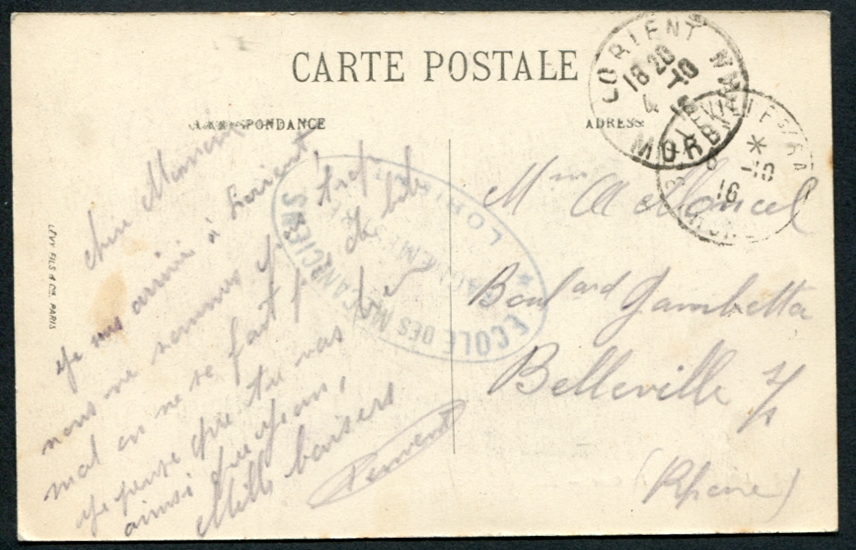 CARTE POSTALE
CORRESPONDANCE
ADRESSE
LORIENT
18 20
4 10
16
MORBIHAN
* 
-10
16
ECOLE DES MECANICIENS
LORIENT
chère Maman
je suis arrivé à Lorient,
nous ne sommes pas trop
mal on ne se fait pas de bile
je pense que tu vas bien
ainsi que
Mille baisers
Mme
Boulard Gambetta
Belleville s/s
(Rhône)
LÉVY FILS & Cie. PARIS